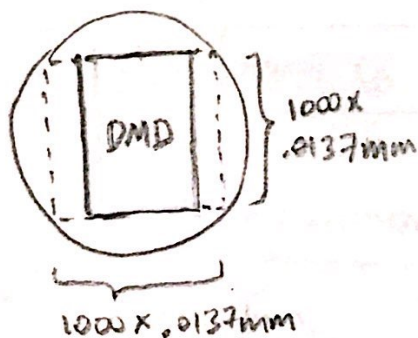 DMD
1000x
.0137mm
1000x .0137mm